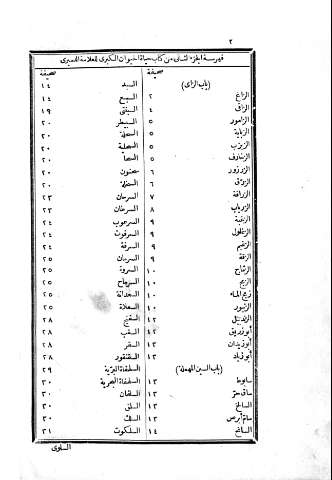 ٢
فهرسة الجزء الثاني من كتاب حياة الحيوان الكبرى للعلامة الدميرى
صحيفة
(باب الزاى)
الزاغ ٢
الزاقى ٤
الزامور ٥
الزبابة ٥
الزبزب ٥
الزخارف ٥
الزرزور ٥
الزرق ٦
الزرافة ٧
الزرياب ٨
الزغبة ٩
الزغلول ٩
الزغيم ٩
الزقة ٩
الزلال ١٠
الزماج ١٠
الزمج ١٠
زمج الماء ١٠
الزنبور ١٠
الزندبيل ١٢
أبو زريق ١٢
أبو زيدان ١٢
أبو زياد ١٢
(باب السين المهملة)
سابوط ١٣
ساق حر ١٣
السالخ ١٣
سام أبرص ١٣
السانح ١٤
صحيفة
السبد ١٤
السبع ١٤
السبنتى ١٩
السبيطر ٢٠
السحلة ٢٠
السحلية ٢٠
السحا ٢٠
سحنون ٢٠
السخلة ٢٠
السرحان ٢٣
السرطان ٢٣
السرعوب ٢٤
السرفوت ٢٤
السرفة ٢٤
السرمان ٢٥
السروة ٢٥
السرماح ٢٥
السعدانة ٢٥
السعلاة ٢٥
السفنج ٢٨
السقب ٢٨
السقر ٢٨
السقنقور ٢٨
السلحفاة البرية ٢٩
السلحفاة البحرية ٣٠
السلفان ٣٠
السلق ٣٠
السلك ٣٠
السلكوت ٣١
السلوى